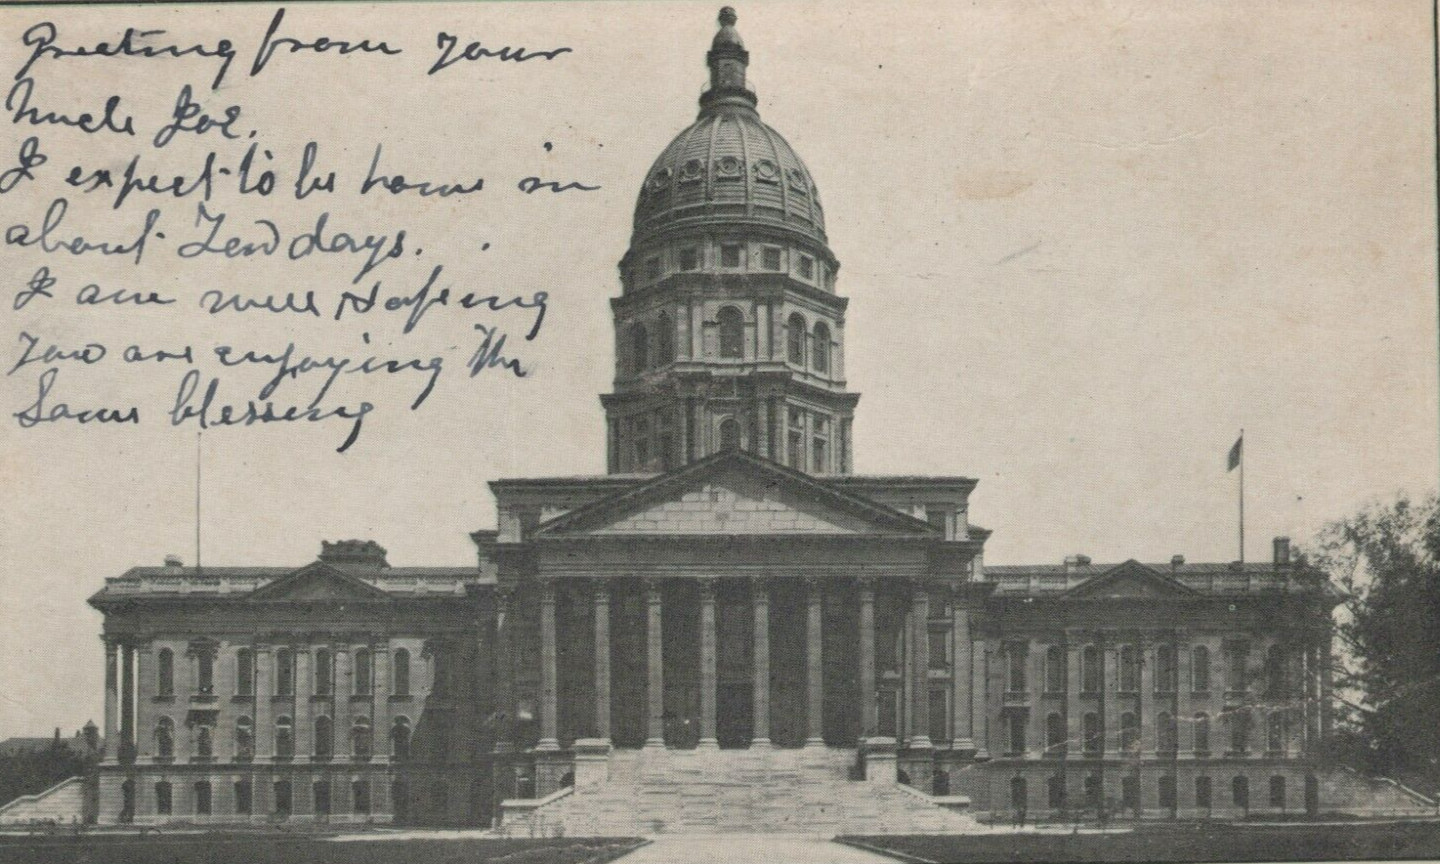 Greeting from your
Uncle Joe.
I expect to be home in
about Ten days.
I am well Hopeing
You are enjoying the
Same blessing